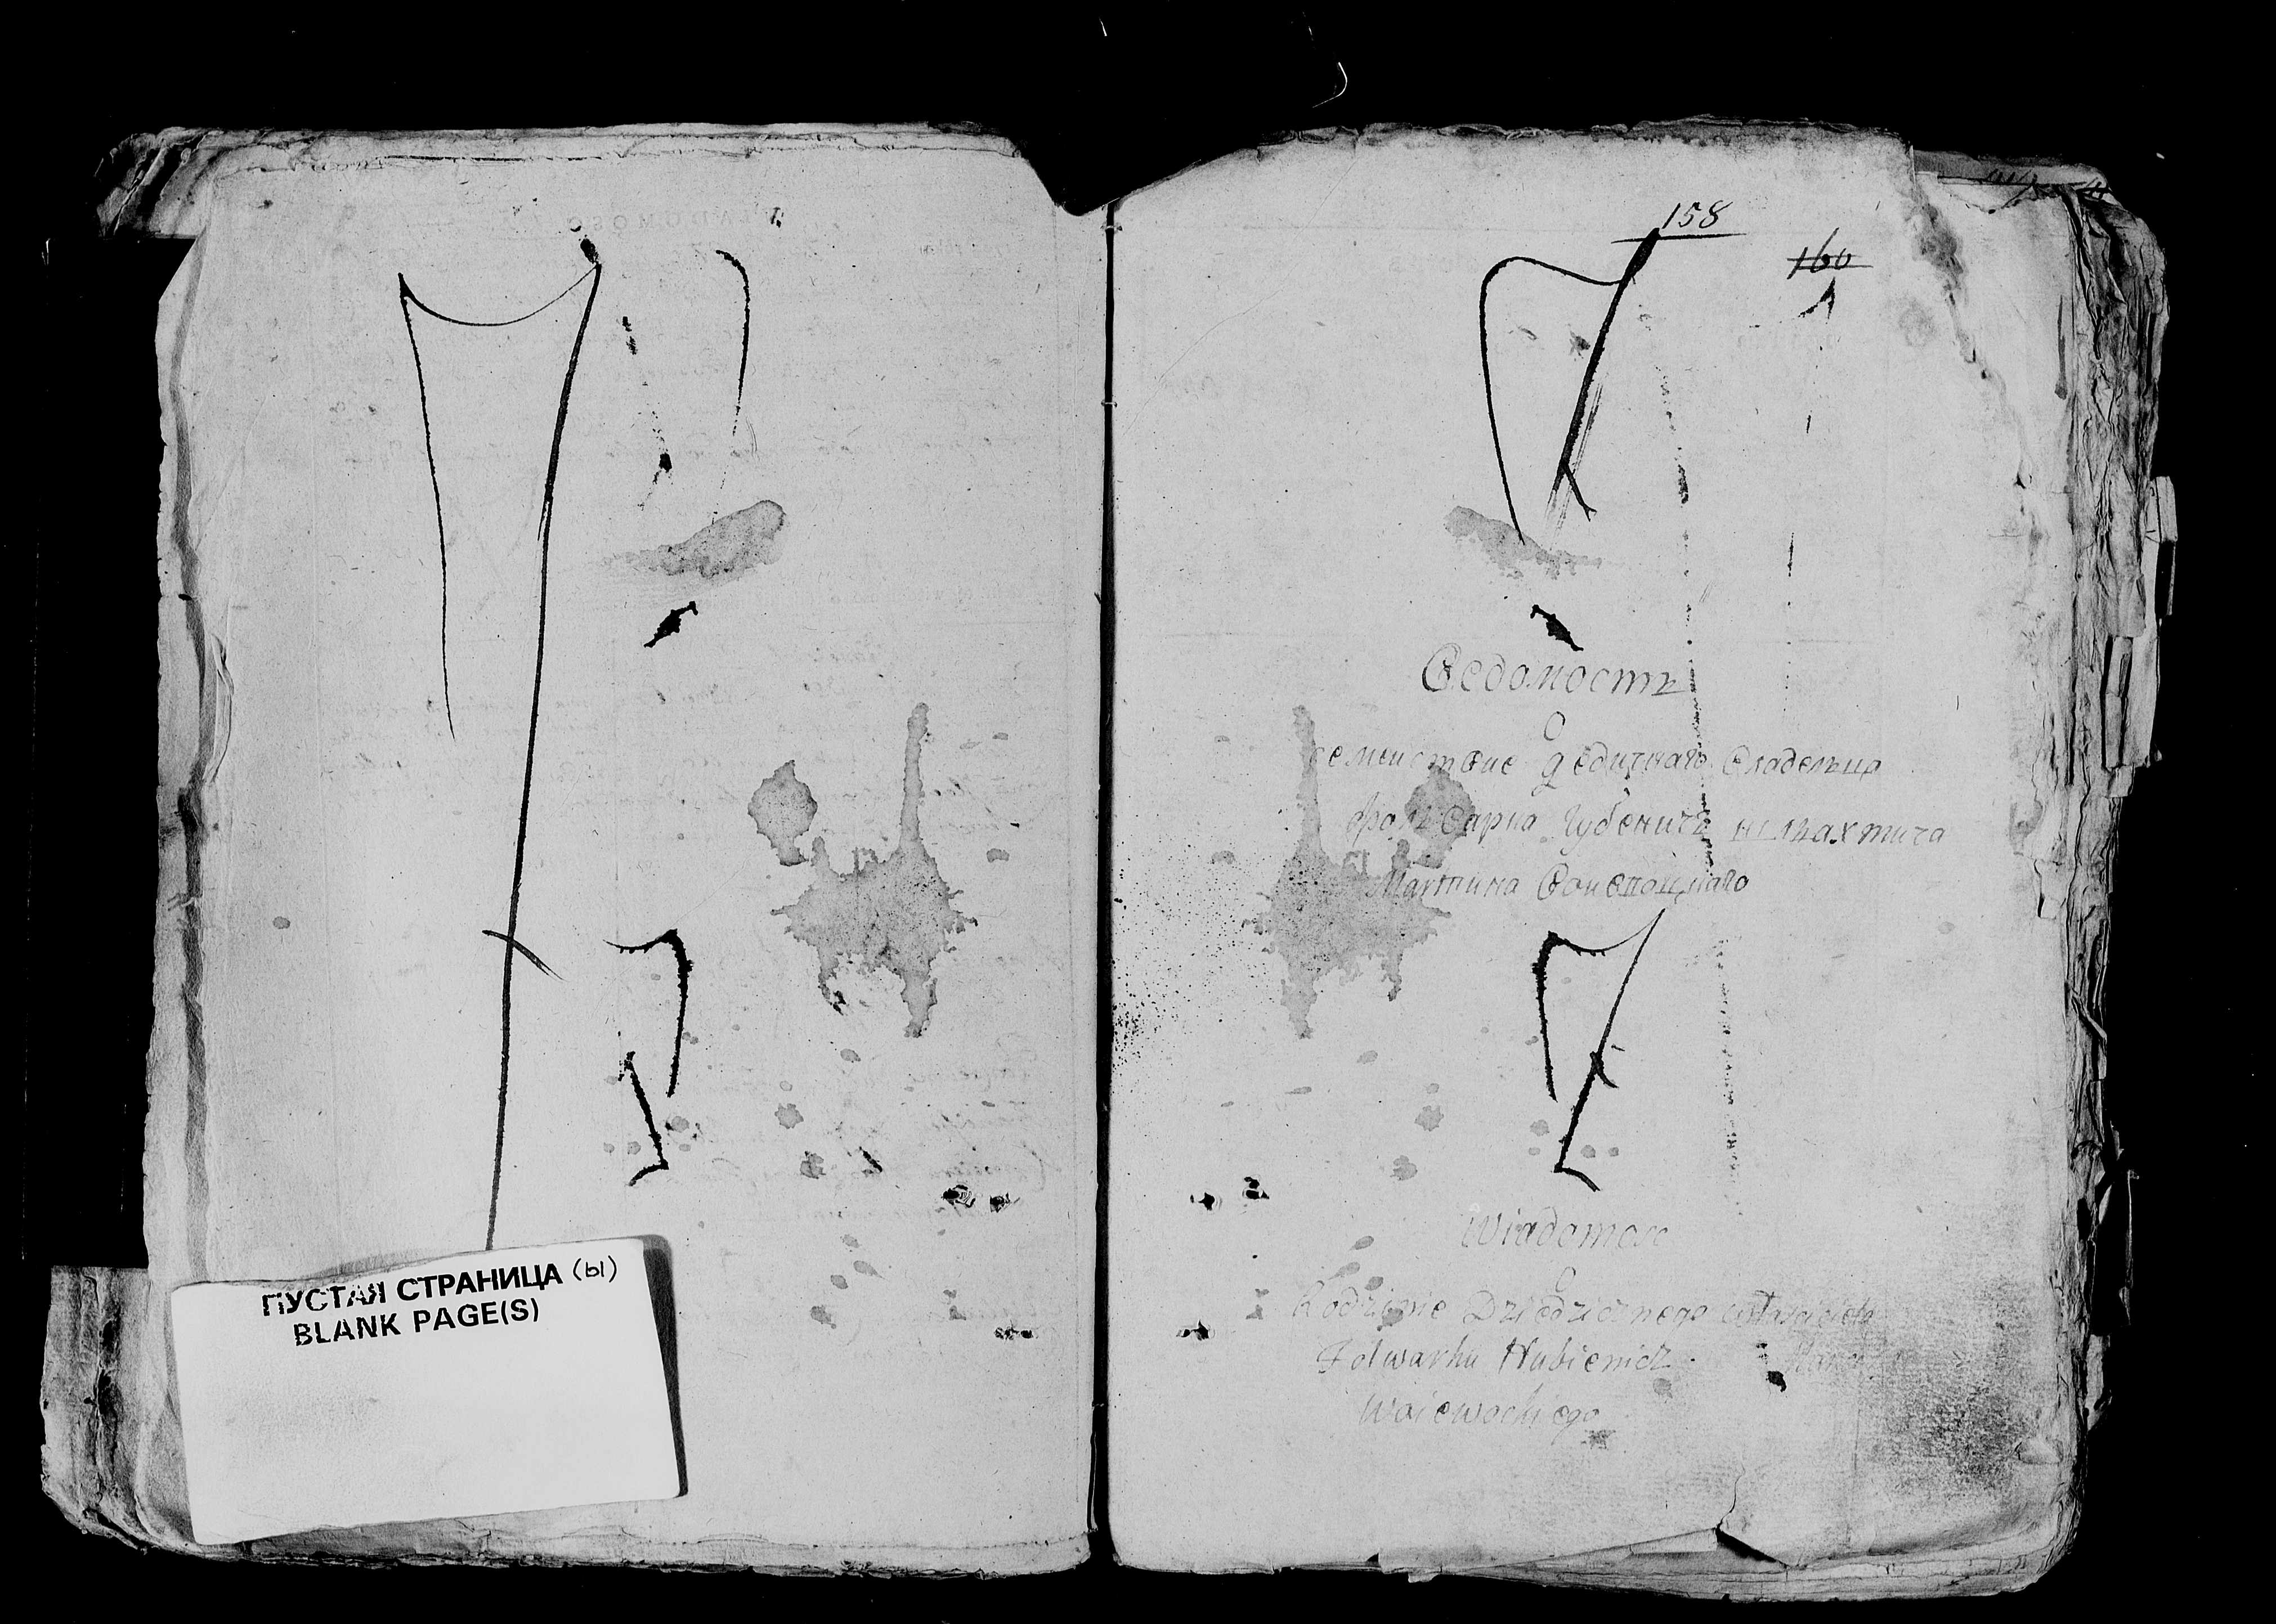 ПУСТАЯ СТРАНИЦА (ы)
BLANK PAGE(S)
158
160
Ведомость
О
семействе дедичнаго владельца
фольварка Губеничъ шляхтича
Мартина
Wiadomosc
O
Rodzinie Dziedzicznego własciciela
Folwarku Hubienicz
Woiewockiego